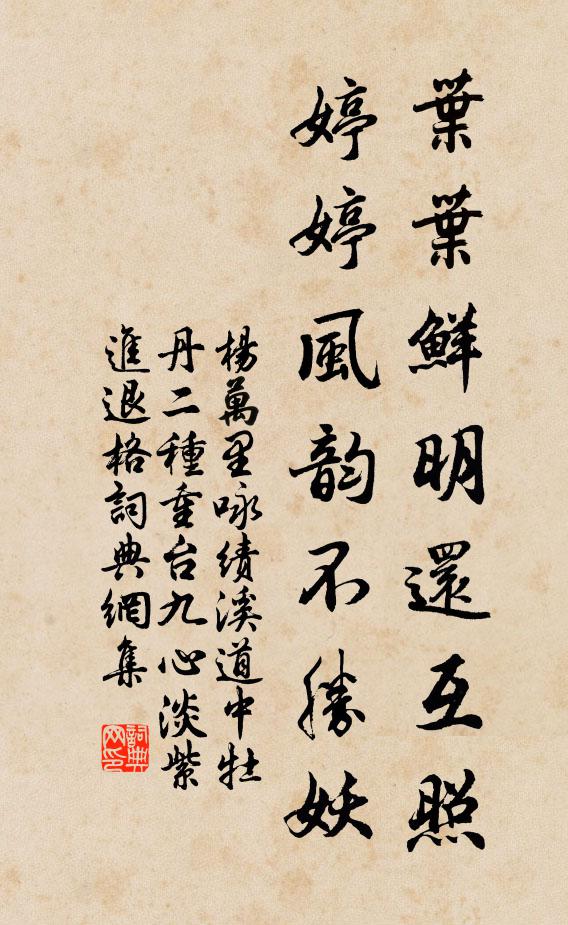 葉葉鮮明還互照
婷婷風韵不勝妖
楊萬里咏績溪道中牡
丹二種重台九心淡紫
進退格詞典網集
詞典网印